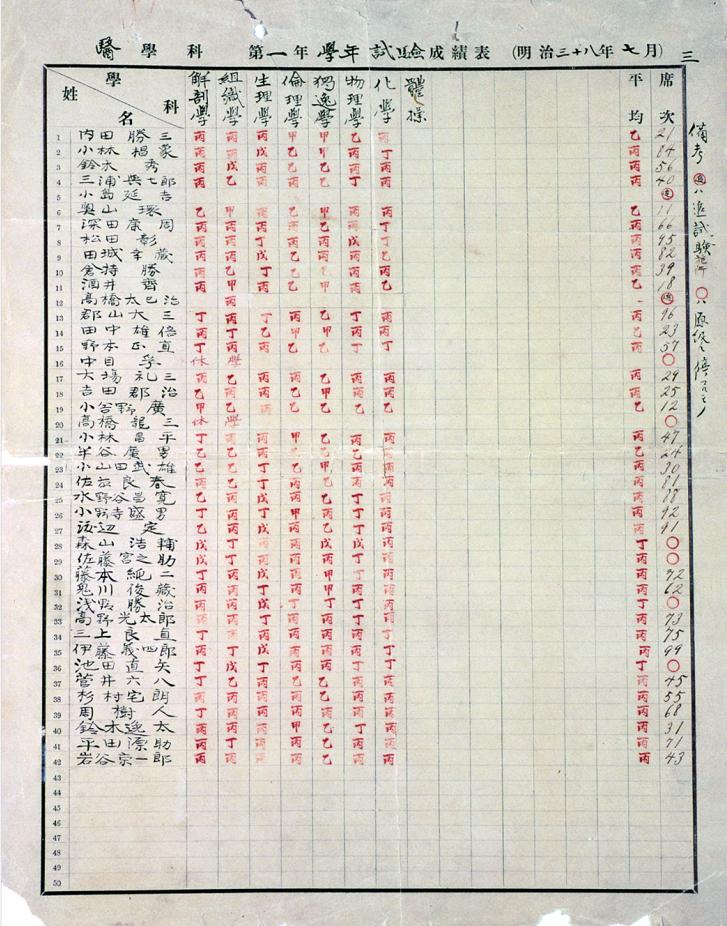 醫學科 第一年學年試驗成績表 (明治三十八年七月) 三
學科 姓名 解剖學 組織學 生理學 倫理學 獨逸學 物理學 化學 體操 平均 席次
1 内田勝三 丙 丙 丙 甲 甲 乙 丙 乙 21
2 小林 丙 丙 戊 乙 甲 丙 丁 丙 84
3 鈴木秀 丙 戊 丙 乙 乙 丙 丙 丙 56
4 三浦 七郎 丙 乙 丙 丙 乙 丁 丙 丙 40
5 小島延吉 追
6 奥山環 乙 甲 丙 乙 甲 丙 丙 乙 11
7 深田康周 丙 丙 丙 丙 乙 丙 丁 丙 66
8 松田彰 丙 丙 丁 丙 丙 戊 丁 丙 95
9 田城幸藏 丙 丙 戊 乙 乙 丙 乙 丙 82
10 倉持勝 丙 乙 丁 乙 乙 丙 乙 丙 39
11 酒井齊 丙 甲 丙 乙 甲 丙 乙 乙 18
12 高橋太巳治 丙 追
13 郡山大三 丁 丙 丁 丙 乙 丁 丙 丙 96
14 田中雄倍 丙 丁 乙 甲 甲 丙 丙 乙 23
15 野本正直 丁 丙 丙 乙 乙 丙 丁 丙 57
16 中目孚 休學 ○
17 大場礼三 丙 乙 丙 丙 乙 丙 丙 丙 29
18 吉田郡治 丙 乙 丙 乙 甲 丙 乙 丙 25
19 小 野廣 甲 乙 乙 乙 乙 乙 乙 乙 12
20 高橋龍三 休學 ○
21 小林昌平 丁 丙 丙 甲 乙 丙 丙 丙 47
22 半谷廣男 乙 乙 丙 乙 乙 乙 丙 乙 24
23 小山田武雄 乙 乙 丁 乙 甲 丙 丙 丙 30
24 佐 良春 丙 丙 丁 丙 乙 丙 丙 丙 81
25 水野谷昌寛 乙 丙 戊 丙 乙 丙 丁 丙 88
26 小野寺盛男 丁 丙 戊 甲 丙 丙 丁 丙 92
27 渡辺定 乙 丁 戊 丙 乙 丙 丁 丙 91
28 森山浩輔 戊 戊 丁 丙 戊 戊 丁 丁 ○
29 佐藤宮之助 戊 丁 丙 丙 丙 丁 丁 丙 ○
30 藤本 二 丁 丙 戊 丙 甲 丙 丙 丙 92
31 鬼川俊藏 丙 丙 乙 丙 甲 丙 丙 丙 62
32 浅野勝治 丙 丁 戊 丁 乙 丙 丁 丙 ○
33 高野光太郎 丙 丙 丙 丙 丙 丙 丙 丙 73
34 三上良直 丁 丙 丁 丙 丙 丙 丁 丙 75
35 伊藤義四郎 丙 丁 丙 丙 丙 丙 丙 丙 99
36 池田直矢 丁 戊 丁 丙 丙 丙 丁 丁 ○
37 菅井六八 丁 丙 丙 乙 乙 丙 丙 丙 45
38 杉村宅朗 丙 丙 丙 丙 乙 丙 丙 丙 55
39 周樹人 丁 丙 丙 乙 丙 丙 丙 丙 68
40 鈴木逸太 丙 丙 丙 甲 乙 丁 丙 丙 31
41 平田源助 丙 丁 丙 丙 乙 丙 丙 丙 71
42 岩谷宗一郎 丙 丙 丙 丙 乙 丙 丙 丙 43
43
44
45
46
47
48
49
50
備考 追 ハ追試験 ○ハ原級